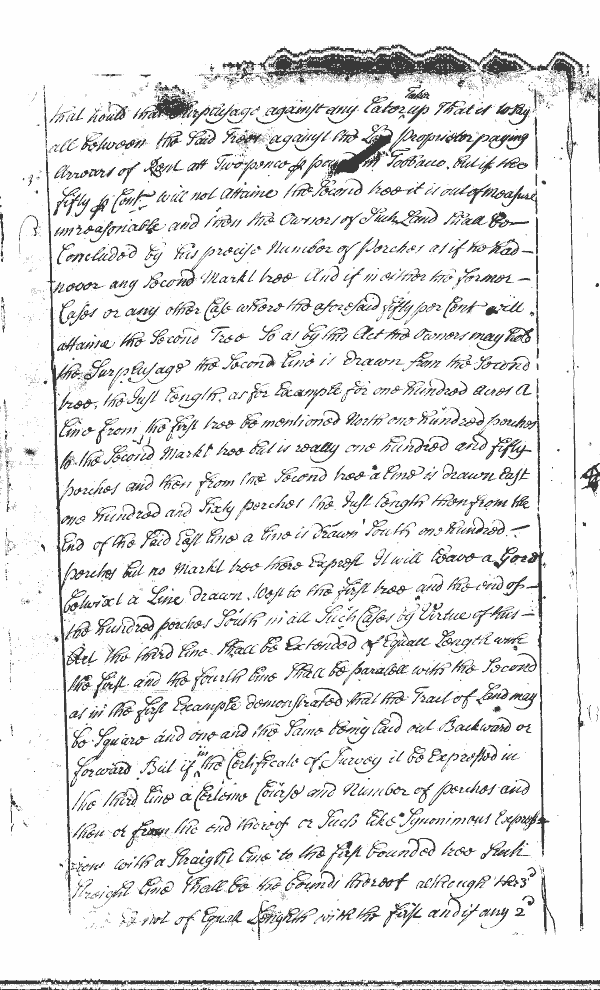 Taker
that hould that Surplusage against any Later up That is to Say
all between the Said Trees against the Lord Proprietor paying
Arrears of Rent att Two pence p pound in Tobacco. But if the
fifty p Cent will not Attaine the Second tree it is out of measure
unreasonable and then the Owners of Such Land Shall be
Concluded by his precise Number of Perches as if he had
never any Second Markt tree And if in either the former
Cases or any other Case where the aforesaid fifty per Cent will
attaine the Second Tree So as by this Act the Owners may hold
the Surplusage the Second Line is drawn from the Second
tree, the Just Length, as for Example for one hundred acres A
Line from the first tree be mentioned North one hundred perches
to the Second Markt tree but is really one hundred and fifty
perches and then from the Second tree a Line is drawn East
one hundred and Sixty perches the Just Length then from the
End of the Said East Line a Line is drawn South one hundred
perches but no Markt tree there Exprest It will leave a Gore
betwixt a Line drawn West to the first tree and the end of
the hundred perches South in all Such Cases by Virtue of this
Act the third Line Shall be Extended of Equall Length with
the first and the fourth Line Shall be paralell with the Second
as in the first Example demonstrated that the Tract of Land may
be Square and one and the Same being laid out Backward or
forward But if in the Certificate of Survey it be Expressed in
the third Line a Certeine Course and Number of perches and
then or from the end thereof or Such like Synonimous Express-
ions with a Straight Line to the first bounded tree Such
Streight Line Shall be the bounds thereof although the 3d
not of Equall Lenghth with the first and if any 2d